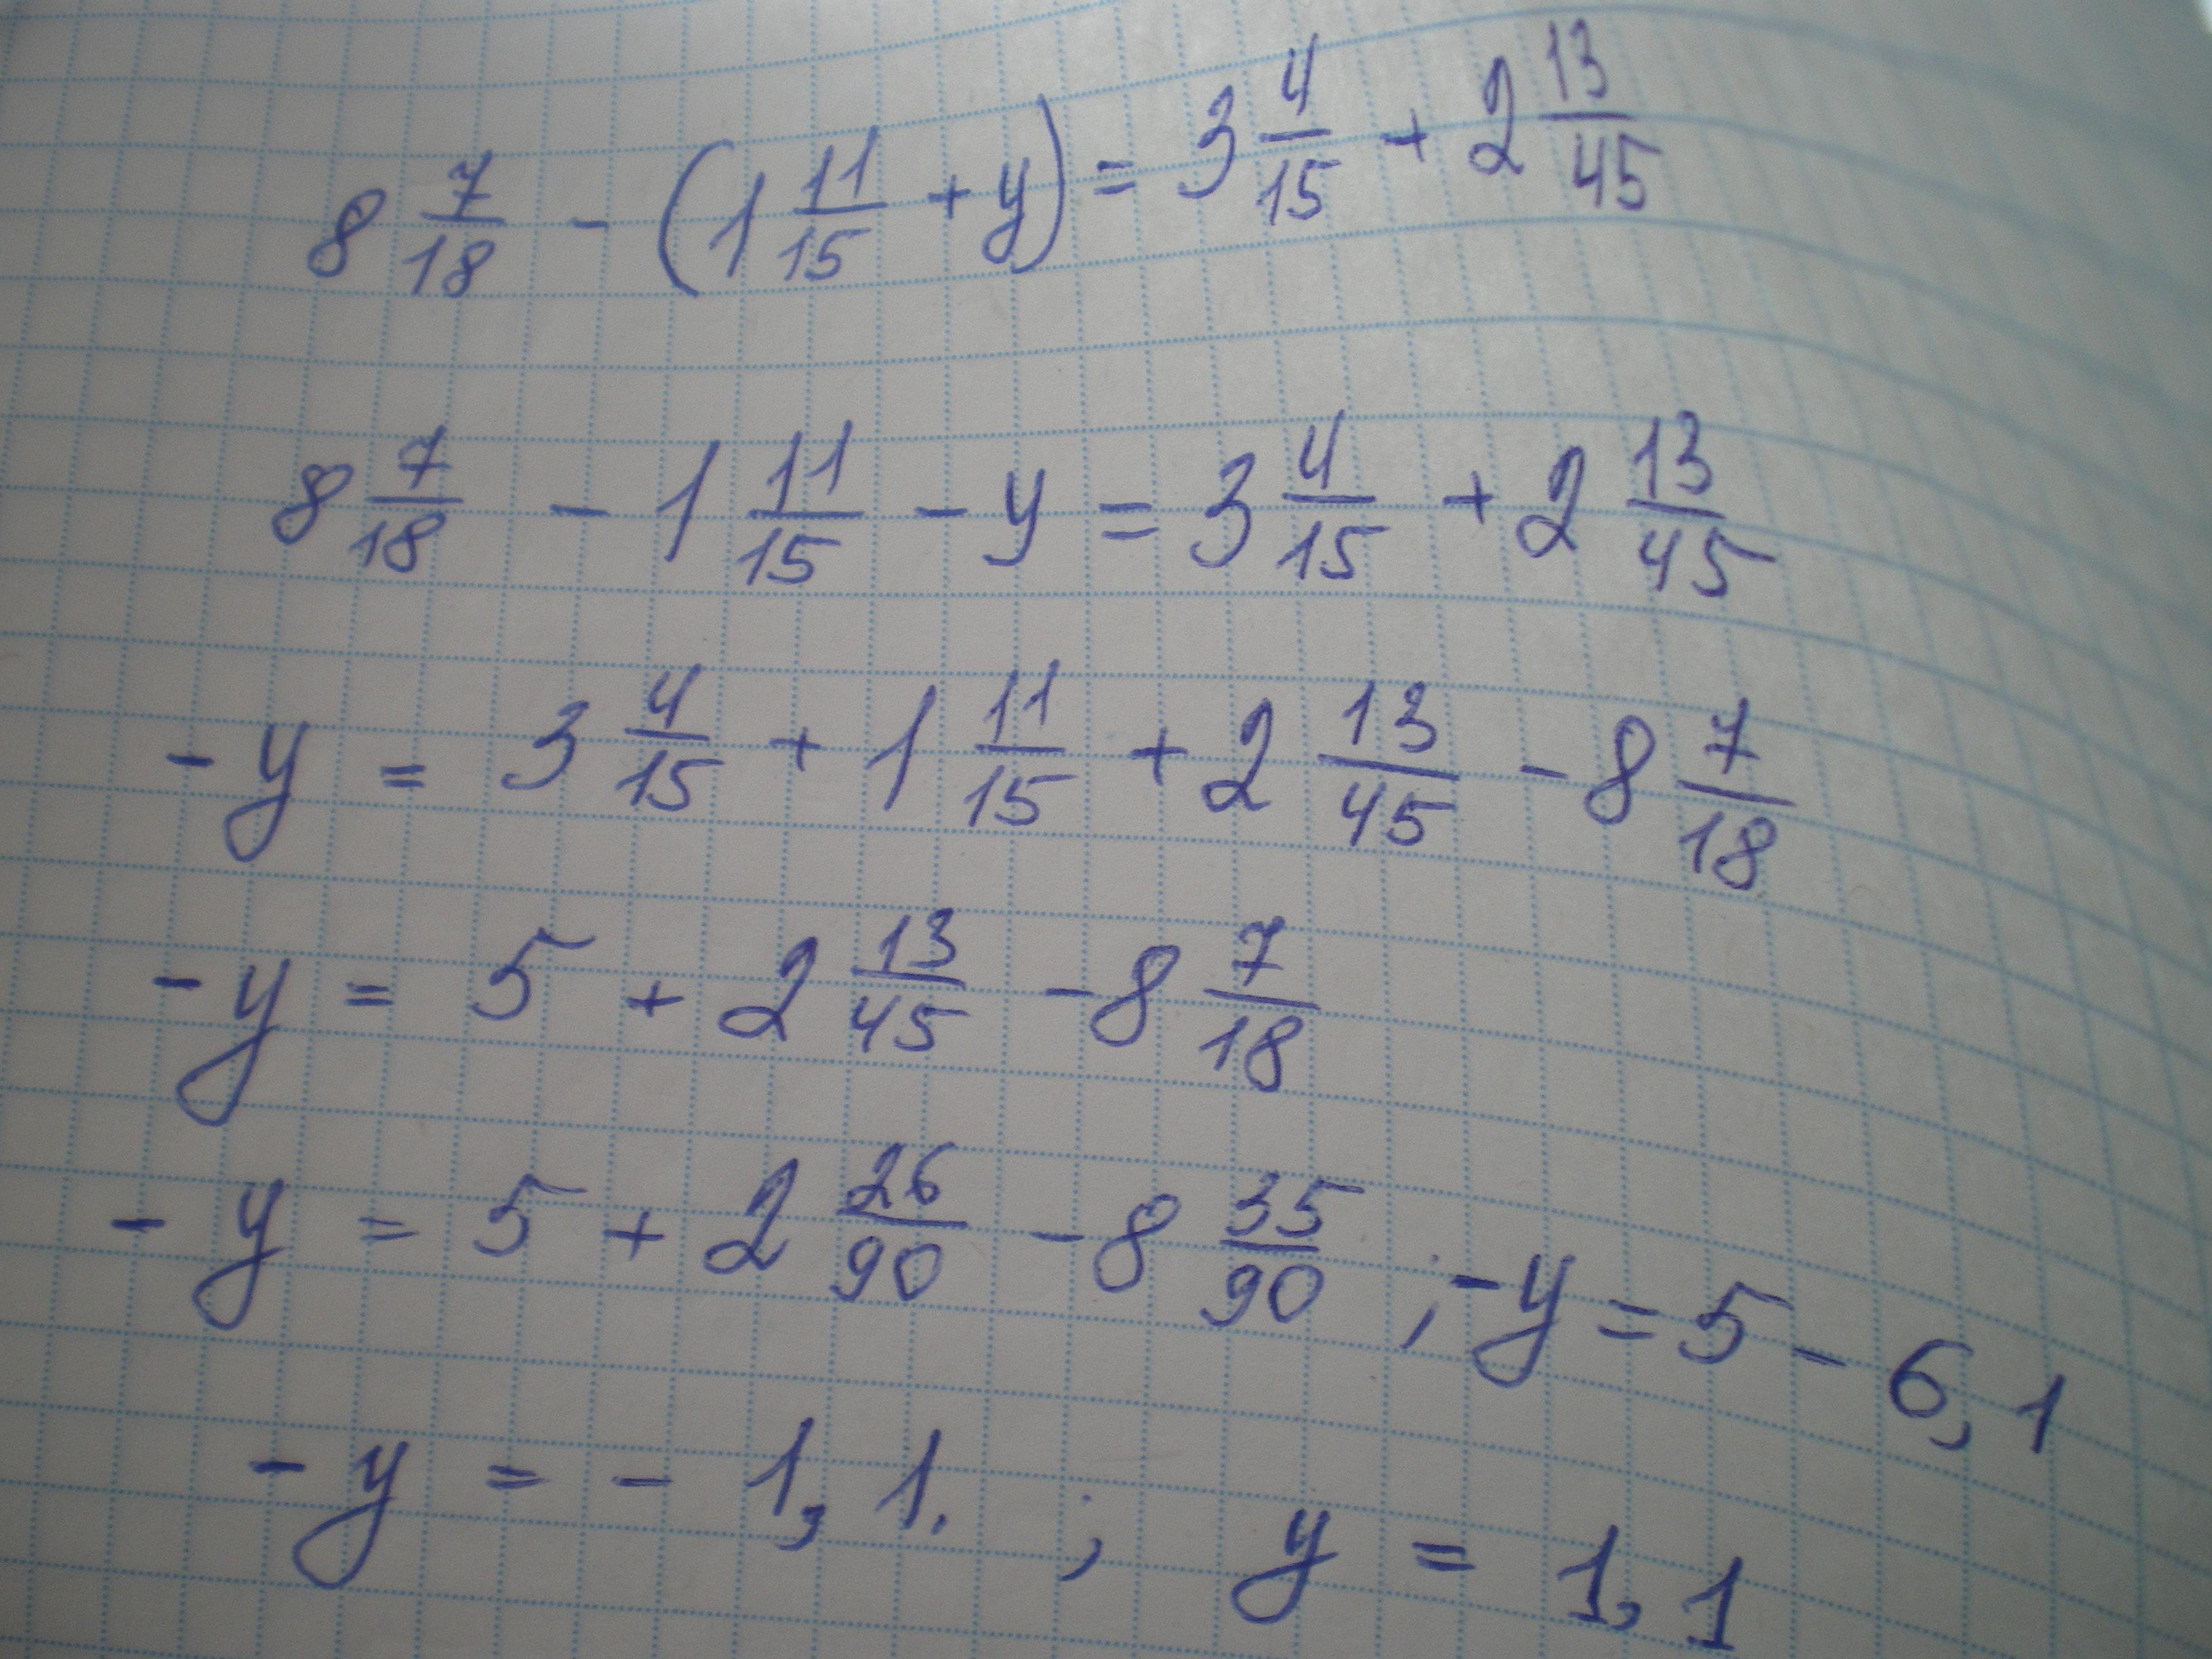 8 7/18 - (1 11/15 + y) = 3 4/15 + 2 13/45
8 7/18 - 1 11/15 - y = 3 4/15 + 2 13/45
- y = 3 4/15 + 1 11/15 + 2 13/45 - 8 7/18
- y = 5 + 2 13/45 - 8 7/18
- y = 5 + 2 26/90 - 8 35/90 ; - y = 5 - 6,1
- y = - 1,1. ; y = 1,1